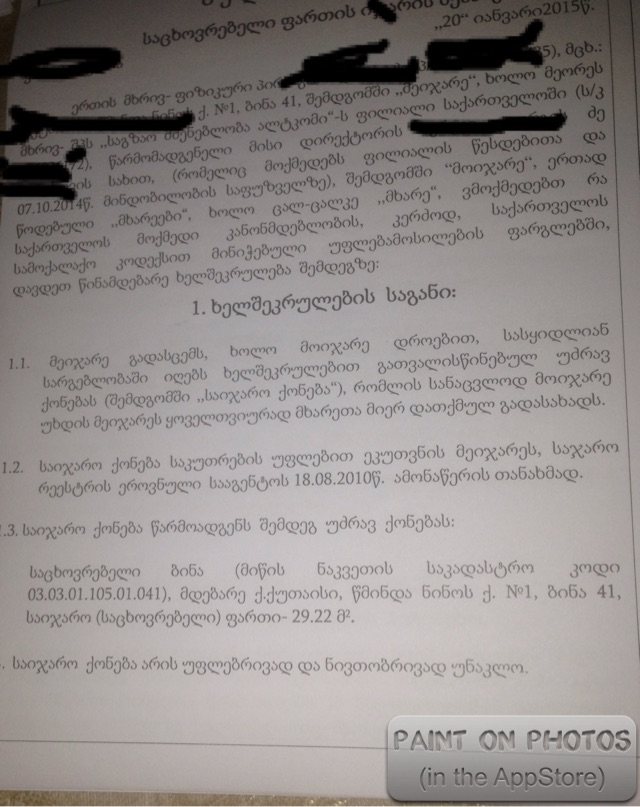 საცხოვრებელი ფართის
„20“ იანვარი2015წ.
მცხ.:
ერთის მხრივ- ფიზიკური
ქ. №1, ბინა 41, შემდგომში „მეიჯარე“, ხოლო მეორეს
მხრივ- შპს „საგზაო მშენებლობა ალტკომი“-ს ფილიალი საქართველოში (ს/კ
წარმომადგენელი მისი დირექტორის
სახით, (რომელიც მოქმედებს ფილიალის წესდებითა და
07.10.2014წ. მინდობილობის საფუძველზე), შემდგომში “მოიჯარე“, ერთად
წოდებული „მხარეები“, ხოლო ცალ-ცალკე „მხარე“, ვმოქმედებთ რა
საქართველოს მოქმედი კანონმდებლობის, კერძოდ, საქართველოს
სამოქალაქო კოდექსით მინიჭებული უფლებამოსილების ფარგლებში,
დავდეთ წინამდებარე ხელშეკრულება შემდეგზე:
1. ხელშეკრულების საგანი:
1.1. მეიჯარე გადასცემს, ხოლო მოიჯარე დროებით, სასყიდლიან
სარგებლობაში იღებს ხელშეკრულებით გათვალისწინებულ უძრავ
ქონებას (შემდგომში „საიჯარო ქონება“), რომლის სანაცვლოდ მოიჯარე
უხდის მეიჯარეს ყოველთვიურად მხარეთა მიერ დათქმულ გადასახადს.
1.2. საიჯარო ქონება საკუთრების უფლებით ეკუთვნის მეიჯარეს, საჯარო
რეესტრის ეროვნული სააგენტოს 18.08.2010წ. ამონაწერის თანახმად.
1.3. საიჯარო ქონება წარმოადგენს შემდეგ უძრავ ქონებას:
საცხოვრებელი ბინა (მიწის ნაკვეთის საკადასტრო კოდი
03.03.01.105.01.041), მდებარე ქ.ქუთაისი, წმინდა ნინოს ქ. №1, ბინა 41,
საიჯარო (საცხოვრებელი) ფართი- 29.22 მ².
. საიჯარო ქონება არის უფლებრივად და ნივთობრივად უნაკლო.
PAINT ON PHOTOS
(in the AppStore)